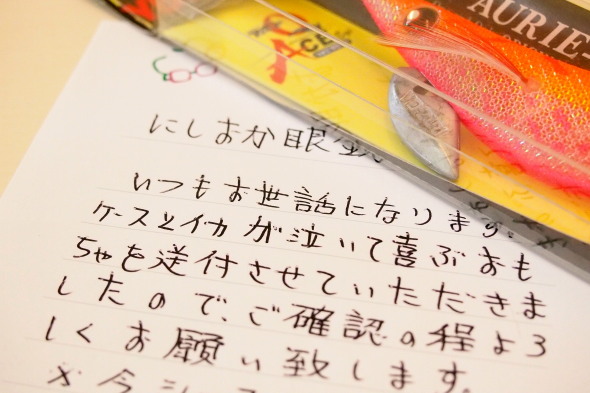 AURIE
ACE
にしおか眼鏡
いつもお世話になります。
ケースとイカが泣いて喜ぶおも
ちゃを送付させていただきま
したので、ご確認の程よろ
しくお願い致します。